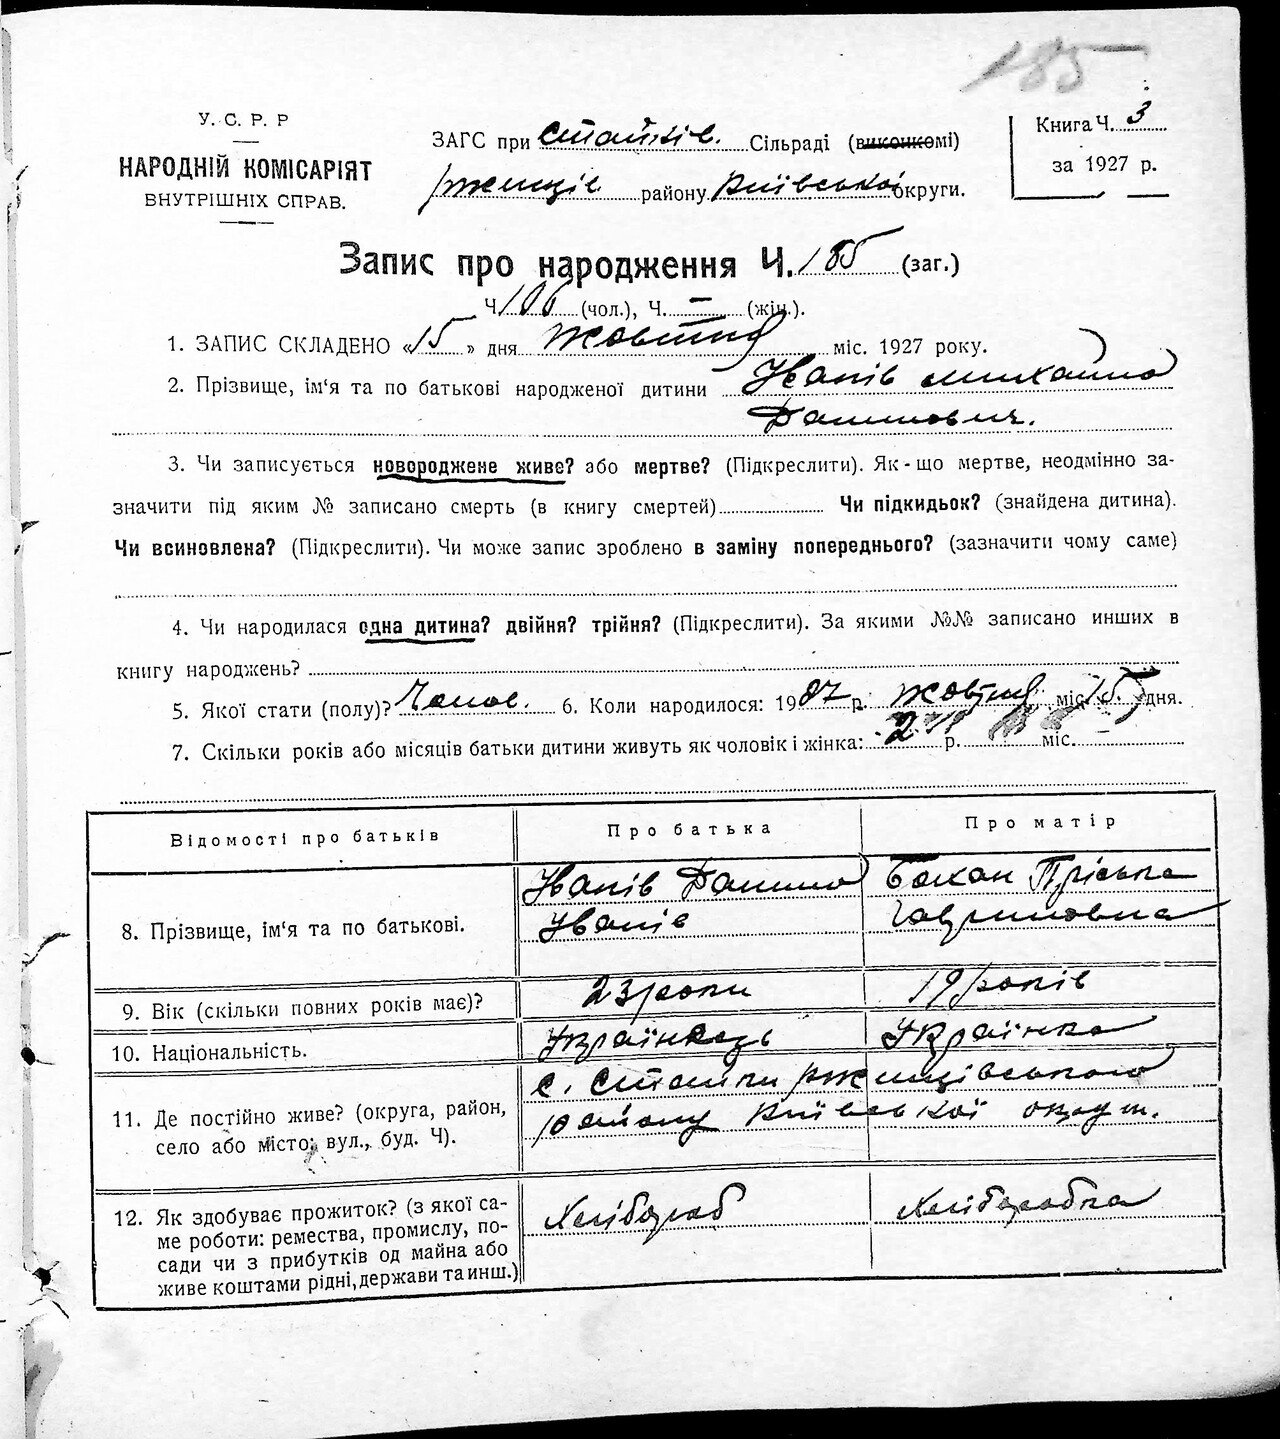 185
У. С. Р. Р
НАРОДНІЙ КОМІСАРІЯТ
ВНУТРІШНІХ СПРАВ.
ЗАГС при Стайків. Сільраді (виконкомі)
Ржищів. району Київської округи.
Книга Ч. 3
за 1927 р.
Запис про народження Ч. 185 (заг.)
Ч 106 (чол.), Ч. — (жін.).
1. ЗАПИС СКЛАДЕНО «15» дня Жовтня міс. 1927 року.
2. Прізвище, ім'я та по батькові народженої дитини Іванів Михайло
Данилович.
3. Чи записується новороджене живе? або мертве? (Підкреслити). Як-що мертве, неодмінно за-
значити під яким № записано смерть (в книгу смертей) Чи підкидьок? (знайдена дитина).
Чи всиновлена? (Підкреслити). Чи може запис зроблено в заміну попереднього? (зазначити чому саме)
4. Чи народилася одна дитина? двійня? трійня? (Підкреслити). За якими №№ записано инших в
книгу народжень?
5. Якої стати (полу)? Чолов. 6. Коли народилося: 1927 р. Жовтня міс. 15 дня.
7. Скільки років або місяців батьки дитини живуть як чоловік і жінка: 2 р. — міс.
Відомості про батьків
Про батька
Про матір
8. Прізвище, ім'я та по батькові.
Іванів Данило
Іванів
Бакан Пріська
Гавриловна
9. Вік (скільки повних років має)?
23 роки
19 років
10. Національність.
Українець
Українка
11. Де постійно живе? (округа, район,
село або місто; вул., буд. Ч).
с. Стайки Ржищівського
району Київської округи.
12. Як здобуває прожиток? (з якої са-
ме роботи: ремества, промислу, по-
сади чи з прибутків од майна або
живе коштами рідні, держави та инш.)
Хлібороб
Хліборобка